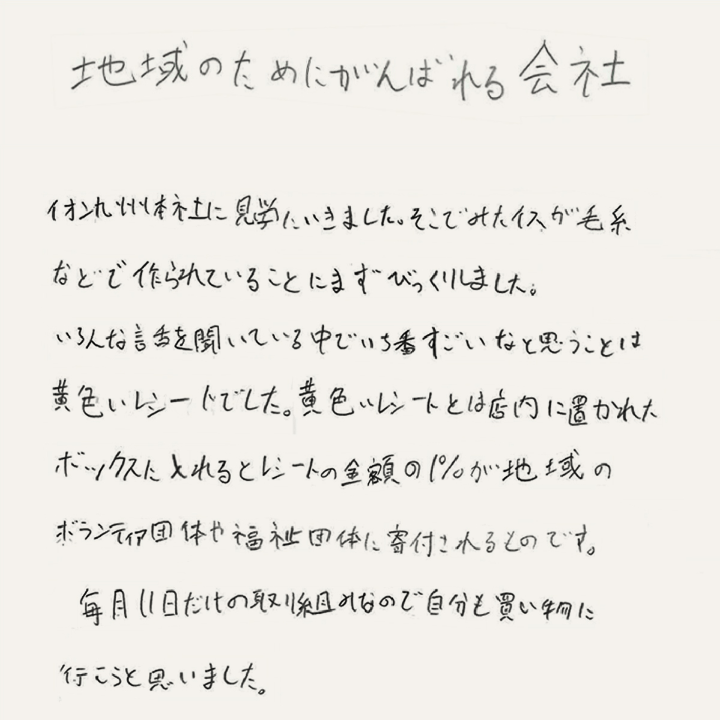 地域のためにがんばれる会社
イオン九州本社に見学にいきました。そこでみたイスが毛糸
などで作られていることにまずびっくりしました。
いろんな言話を聞いている中でいち番すごいなと思うことは
黄色いレシートでした。黄色いレシートとは店内に置かれた
ボックスに入れるとレシートの金額の1%が地域の
ボランティア団体や福祉団体に寄付されるものです。
毎月11日だけの取り組みなので自分も買い物に
行こうと思いました。